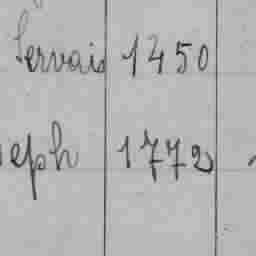 Servais 1450
eph 1772